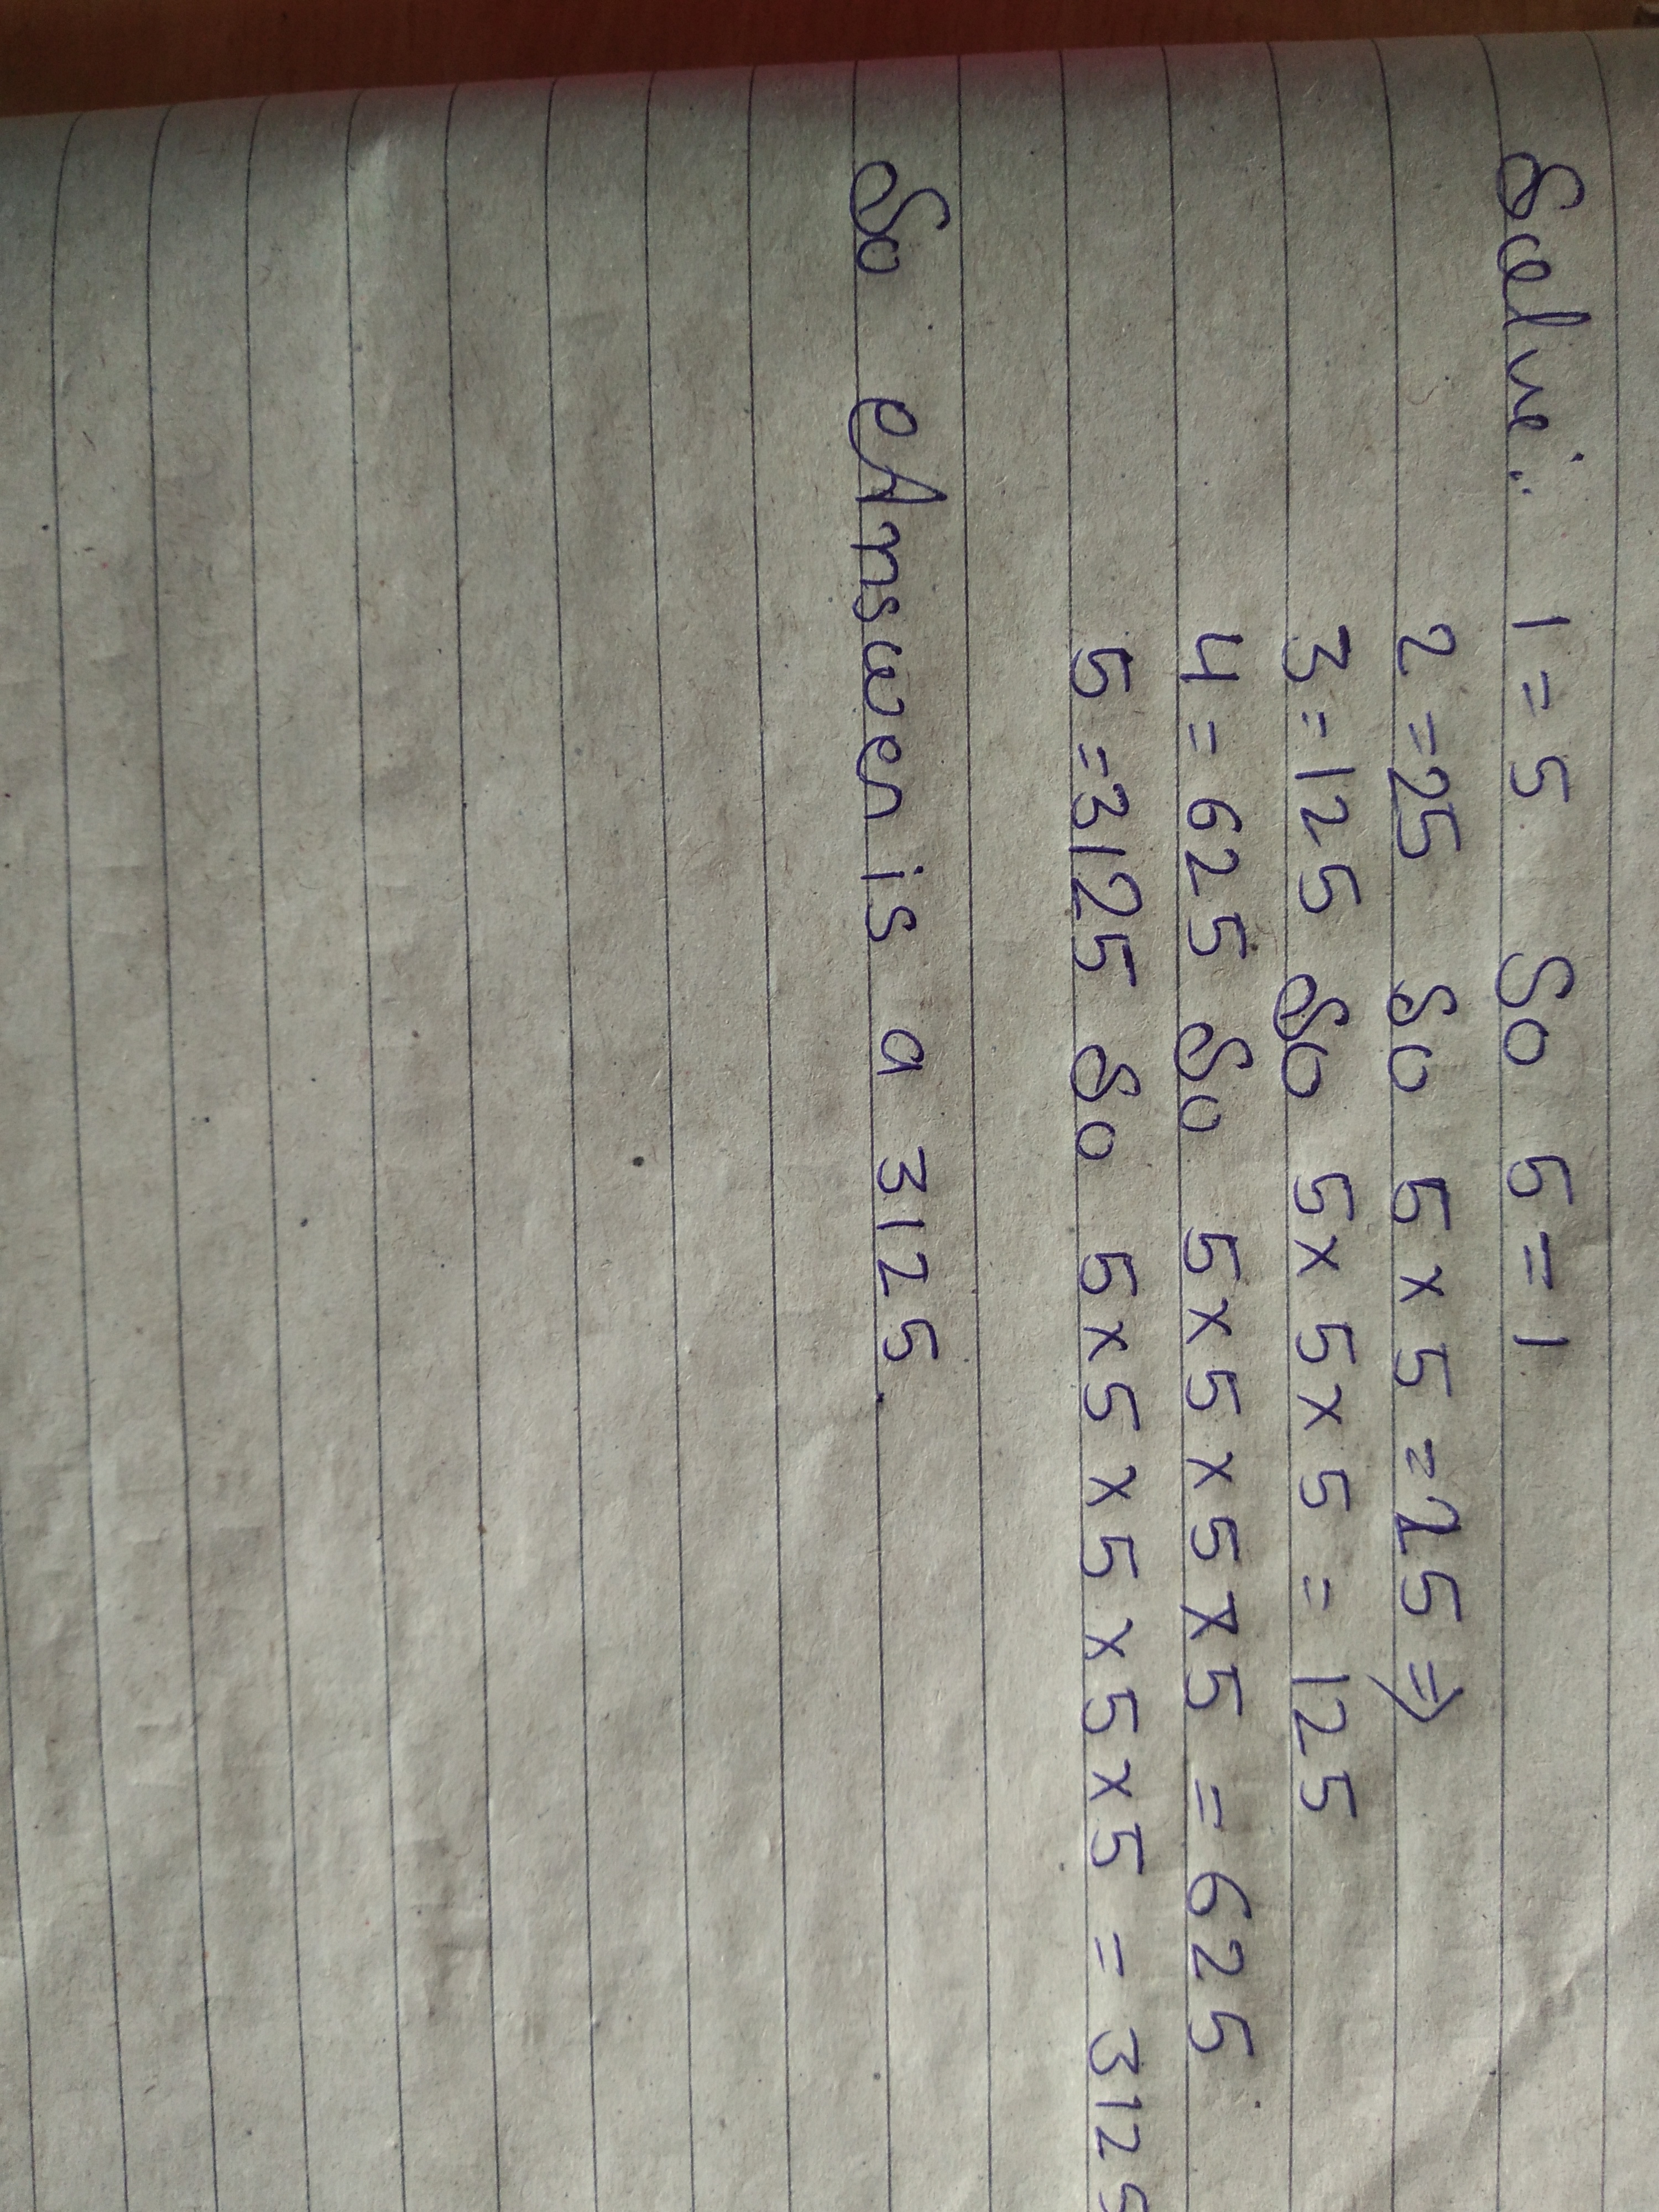 Solve:. 1 = 5 So 5 = 1
2 = 25 So 5 x 5 = 25 ⇒
3 = 125 So 5 x 5 x 5 = 125
4 = 625 So 5 x 5 x 5 x 5 = 625
5 = 3125 So 5 x 5 x 5 x 5 x 5 = 3125
So Answer is a 3125.